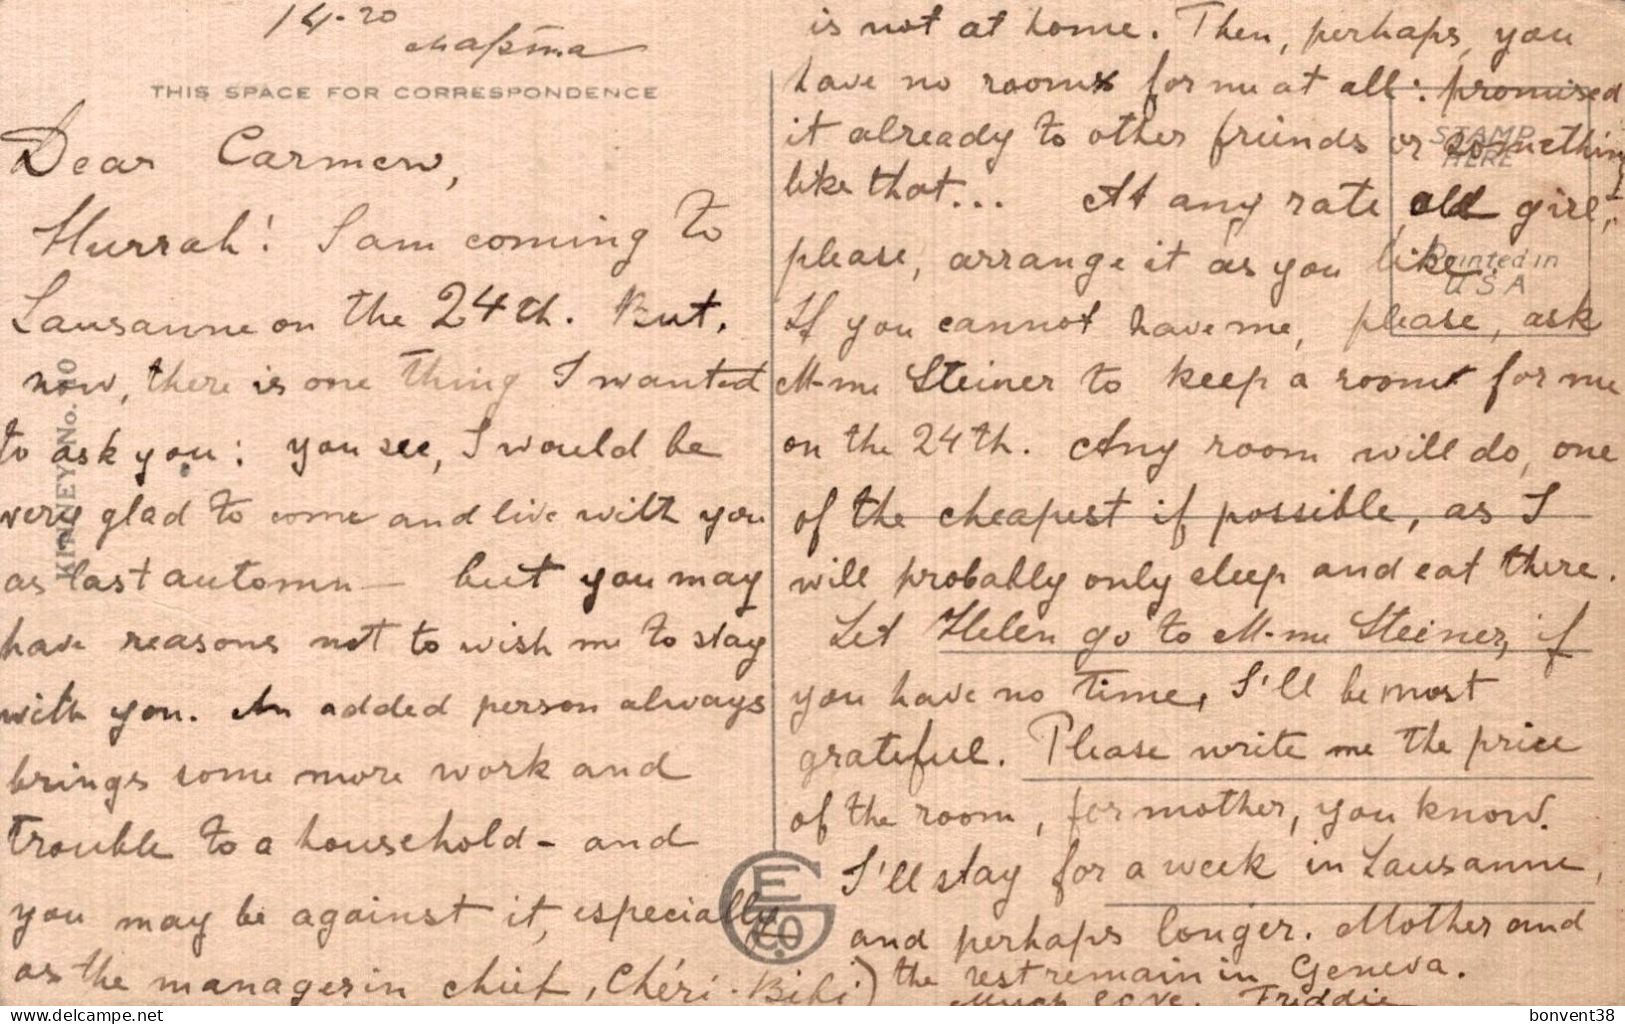 14-20
марта
THIS SPACE FOR CORRESPONDENCE
Dear Carmen,
Hurrah! I am coming to
Lausanne on the 24th. But,
now, there is one thing I wanted
to ask you: you see, I would be
very glad to come and live with you
as last automn — but you may
have reasons not to wish me to stay
with you. An added person always
brings some more work and
trouble to a household - and
you may be against it, especially
as the manager in chief, Chéri-Bibi)
is not at home. Then, perhaps, you
have no room for me at all: promised
it already to other friends or something
like that... At any rate, old girl,
please, arrange it as you like.
If you cannot have me, please, ask
M-me Steiner to keep a room for me
on the 24th. Any room will do, one
of the cheapest if possible, as I
will probably only sleep and eat there.
Let Helen go to M-me Steiner, if
you have no time, I'll be most
grateful. Please write me the price
of the room, for mother, you know.
I'll stay for a week in Lausanne,
and perhaps longer. Mother and
the rest remain in Geneva.
Much love. Friddie
STAMP
HERE
Printed in
U S A
KINNEY No. 10
E G CO.
delcampe.net
bonvent38